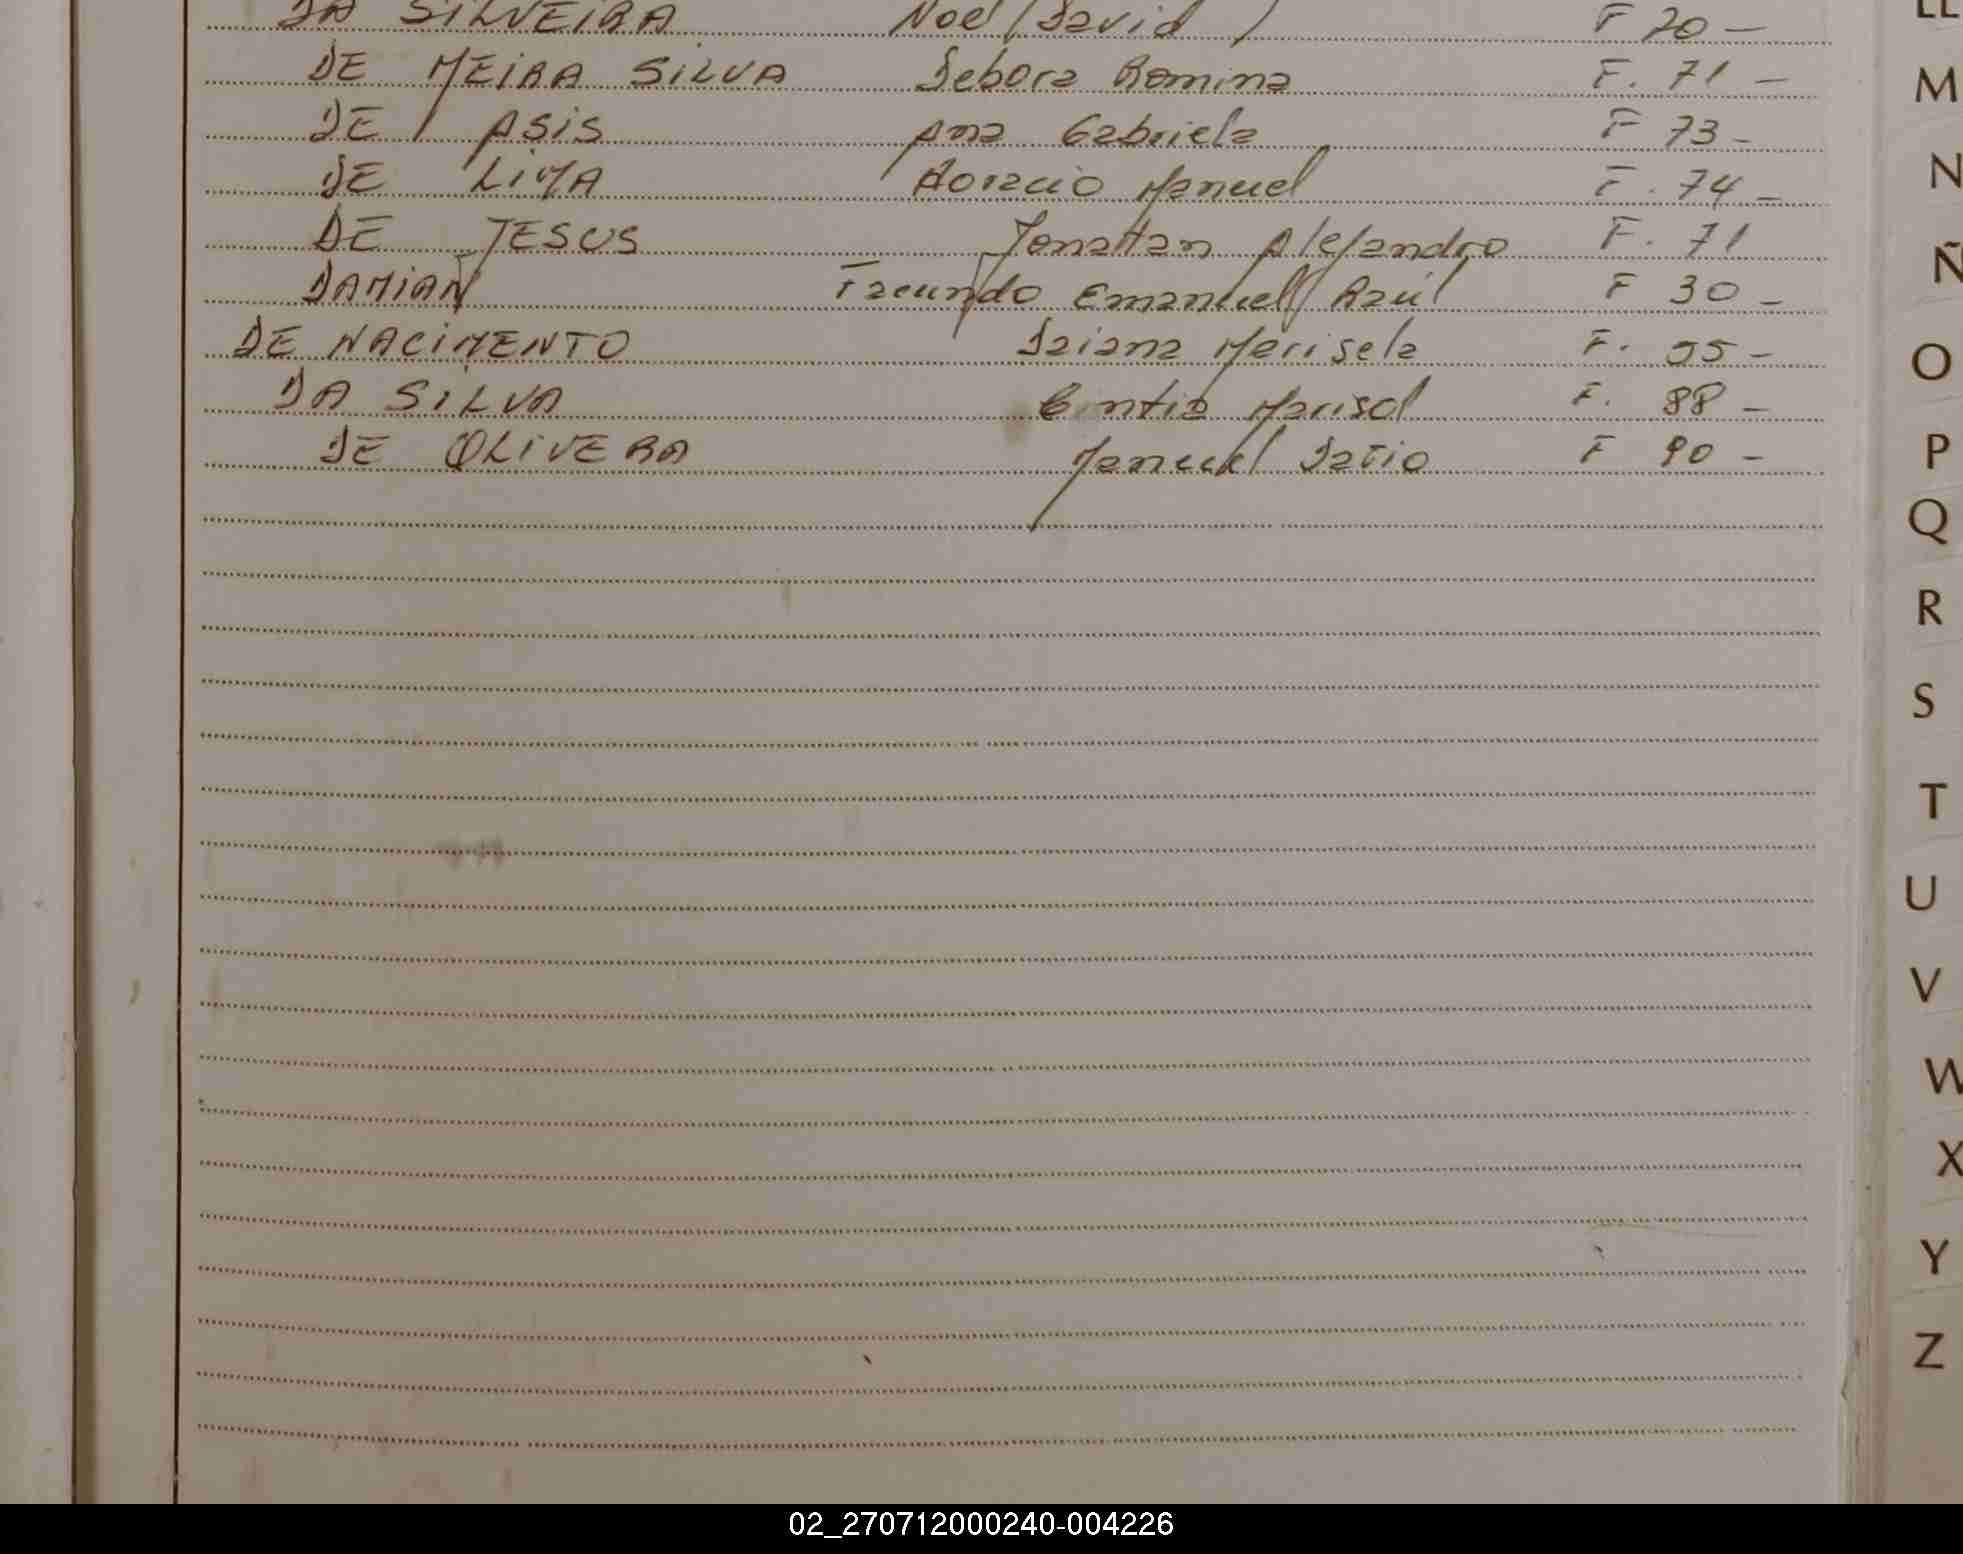 DA SILVEIRA Noe David F 70 —
DE MEIRA SILVA Debora Romina F. 71 —
DE ASIS Ana Gabriela F 73 —
DE LIMA Horacio Manuel F. 74 —
DE JESUS Jonatan Alejandro F. 71
DAMIAN Facundo Emanuel Raúl F 30 —
DE NACIMENTO Daiana Marisela F. 55 —
DA SILVA Cintia Marisol F. 88 —
DE OLIVERA Manuel Dario F 90 —
LL
M
N
Ñ
O
P
Q
R
S
T
U
V
W
X
Y
Z
02_270712000240-004226